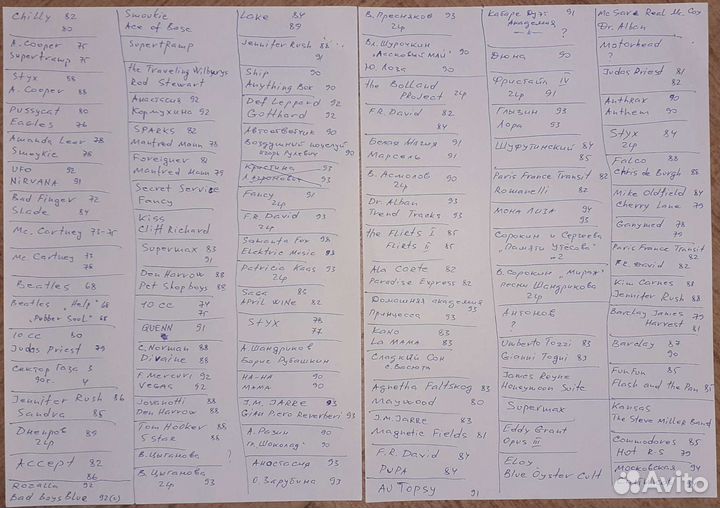 Chilly 82
80
A. Cooper 75
Supertramp 75
Styx 88
A. Cooper 88
Pussycat 80
Eagles 76
Amanda Lear 78
Smoykie 78
UFO 92
NIRVANA 91
Bad Finger 72
Slade 84
Mc. Cartney 73-75
Mc Cartney 73
75
Beatles 68
Beatles "Help" 68
"Rubber Soul" 68
10 cc 80
Judas Priest 79
Сектор Газа 3
90г. 4
Jennifer Rush 86
Sandra 85
Днепров 89
2 LP
Accept 82
86
Rozalla 92
Bad boys Blue 92(u)
Smoukie
Ace of Base
Supertramp
the Traveling Wilburys
Rod Stewart
Анастасия 92
Кормухина 92
SPARKS 82
Manfred Mann 78
Foreigner 81
Manfred Mann 79
Secret Service
Fancy
Kiss
Cliff Richard
Supermax 83
91
Den Harrow 88
Pet Shop boys 88
10 cc 74
75
QUENN 91
C. Norman 88
Divaine 88
F. Mercuri 92
VEGAS 92
Jovanotti 88
Den Harrow 88
Tom Hooker 88
5 Star 88
В. Цыганова ?
В. Цыганова
2LP 93
Lake 84
89
Jennifer Rush 88
91
Ship 90
Anything Box 90
Def Leppard 92
Gotthard 92
Автоответчик 90
Воздушный поцелуй
Игорь Рулевич 90
Кристина 93
93
Fancy 91
2LP
F.R. David 93
2LP
Samanta Fox 88
Elektric Music 93
Patricia Kaas 93
2LP
Saga 85
April Wine 82
STYX 78
77
А. Шандриков
Борис Рубашкин
НА-НА 90
МАМА 90
J.M. JARRE 93
Gian Piero Reverberi 93
А. Разин 90
гр. "Шоколад" 90
Анастасия 93
О. Зарубина 93
В. Пресняков 93
2LP
Вл. Шурочкин 93
"Ласковый Май" 90
Ю. Лоза 90
the Bolland
Project 2LP
F.R. David 82
84
Белая Магия 91
Марсель 91
В. Асмолов 90
2LP
Dr. Alban 93
Trend Tracks 93
the Flirts I 85
Flirts II 85
Ala Carte 82
Paradise Express 82
Домашняя академия
Принцесса 93
Kano 83
La Mama 83
Сладкий Сон
Agnetha Faltskog 83
Maywood 80
J.M. Jarre 83
Magnetic Fields 81
F.R. David 84
PUPA 84
AU Topsy 91
Кабаре Дуэт 91
Академия
?
Дюна 90
Фристайл IV
2LP 91
Глызин 93
Лора 93
Шуфутинский 84
85
Paris France Transit 82
Romanelli 82
Мона Лиза 94
93
Сорокин и Сергеева
"Памяти Утесова"
В. Сорокин "Мираж"
песни Шандрикова
2LP
Антонов
?
Umberto Tozzi 83
Gianni Togni 83
James Reyne
Honeymoon Suite
Supermax
Eddy Grant
Opus III
Eloy
Blue Öyster Cult
Mc Sare Real Mc Coy
Dr. Alban
Motorhead
?
Judas Priest 81
82
Anthrax 90
Anthem 90
Styx 84
82
Falco 88
Chris de Burgh 86
Mike Oldfield 84
Cherry Lane 79
Ganymed 78
79
Paris France Transit 82
F.R. David 82
Kim Carnes 88
Jennifer Rush 88
Barclay James 79
Harvest 81
Barclay 87
90
Fun Fun 85
Flash and the Pan 85
Kansas
The Steve Miller Band
Commodores 85
Hot R.S 79
Московская 94
Avito